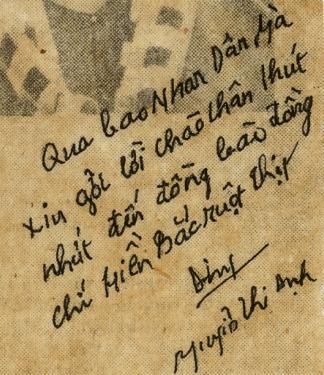 Qua báo Nhân Dân Mà
xin gởi lời chào thân thiết
nhứt đến đồng bào đồng
chí Miền Bắc ruột thịt
Nguyễn Thị Định